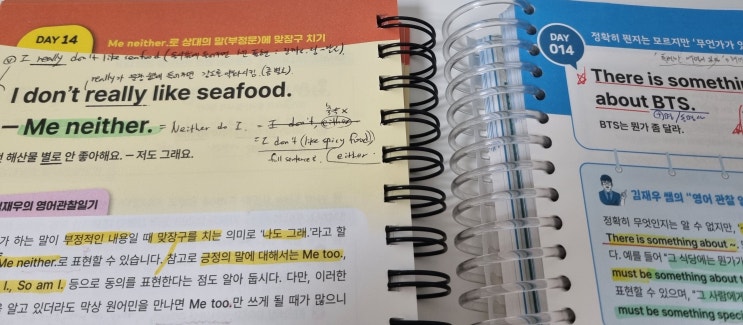 DAY 14
Me neither.로 상대의 말(부정문)에 맞장구 치기
I really don't like seafood
really가
I don't really like seafood.
– Me neither. = Neither do I. = I don't, either
= I don't (like spicy food)
full sentence, either.
해산물 별로 안 좋아해요. – 저도 그래요.
김재우의 영어관찰일기
가 하는 말이 부정적인 내용일 때 맞장구를 치는 의미로 '나도 그래.'라고 할
Me neither.로 표현할 수 있습니다. 참고로 긍정의 말에 대해서는 Me too.,
I, So am I. 등으로 동의를 표현한다는 점도 알아 둡시다. 다만, 이러한
알고 있더라도 막상 원어민을 만나면 Me too.만 쓰게 될 때가 많으니
DAY
014
정확히 뭔지는 모르지만 '무언가가 있
There is something
about BTS.
BTS는 뭔가 좀 달라.
김재우 쌤의 "영어 관찰 일
정확히 무엇인지는 알 수 없지만,
There is something about ~.
다. 예를 들어 "그 식당에는 뭔가가
must be something about t
표현할 수 있으며, "그 사람에게
must be something speci